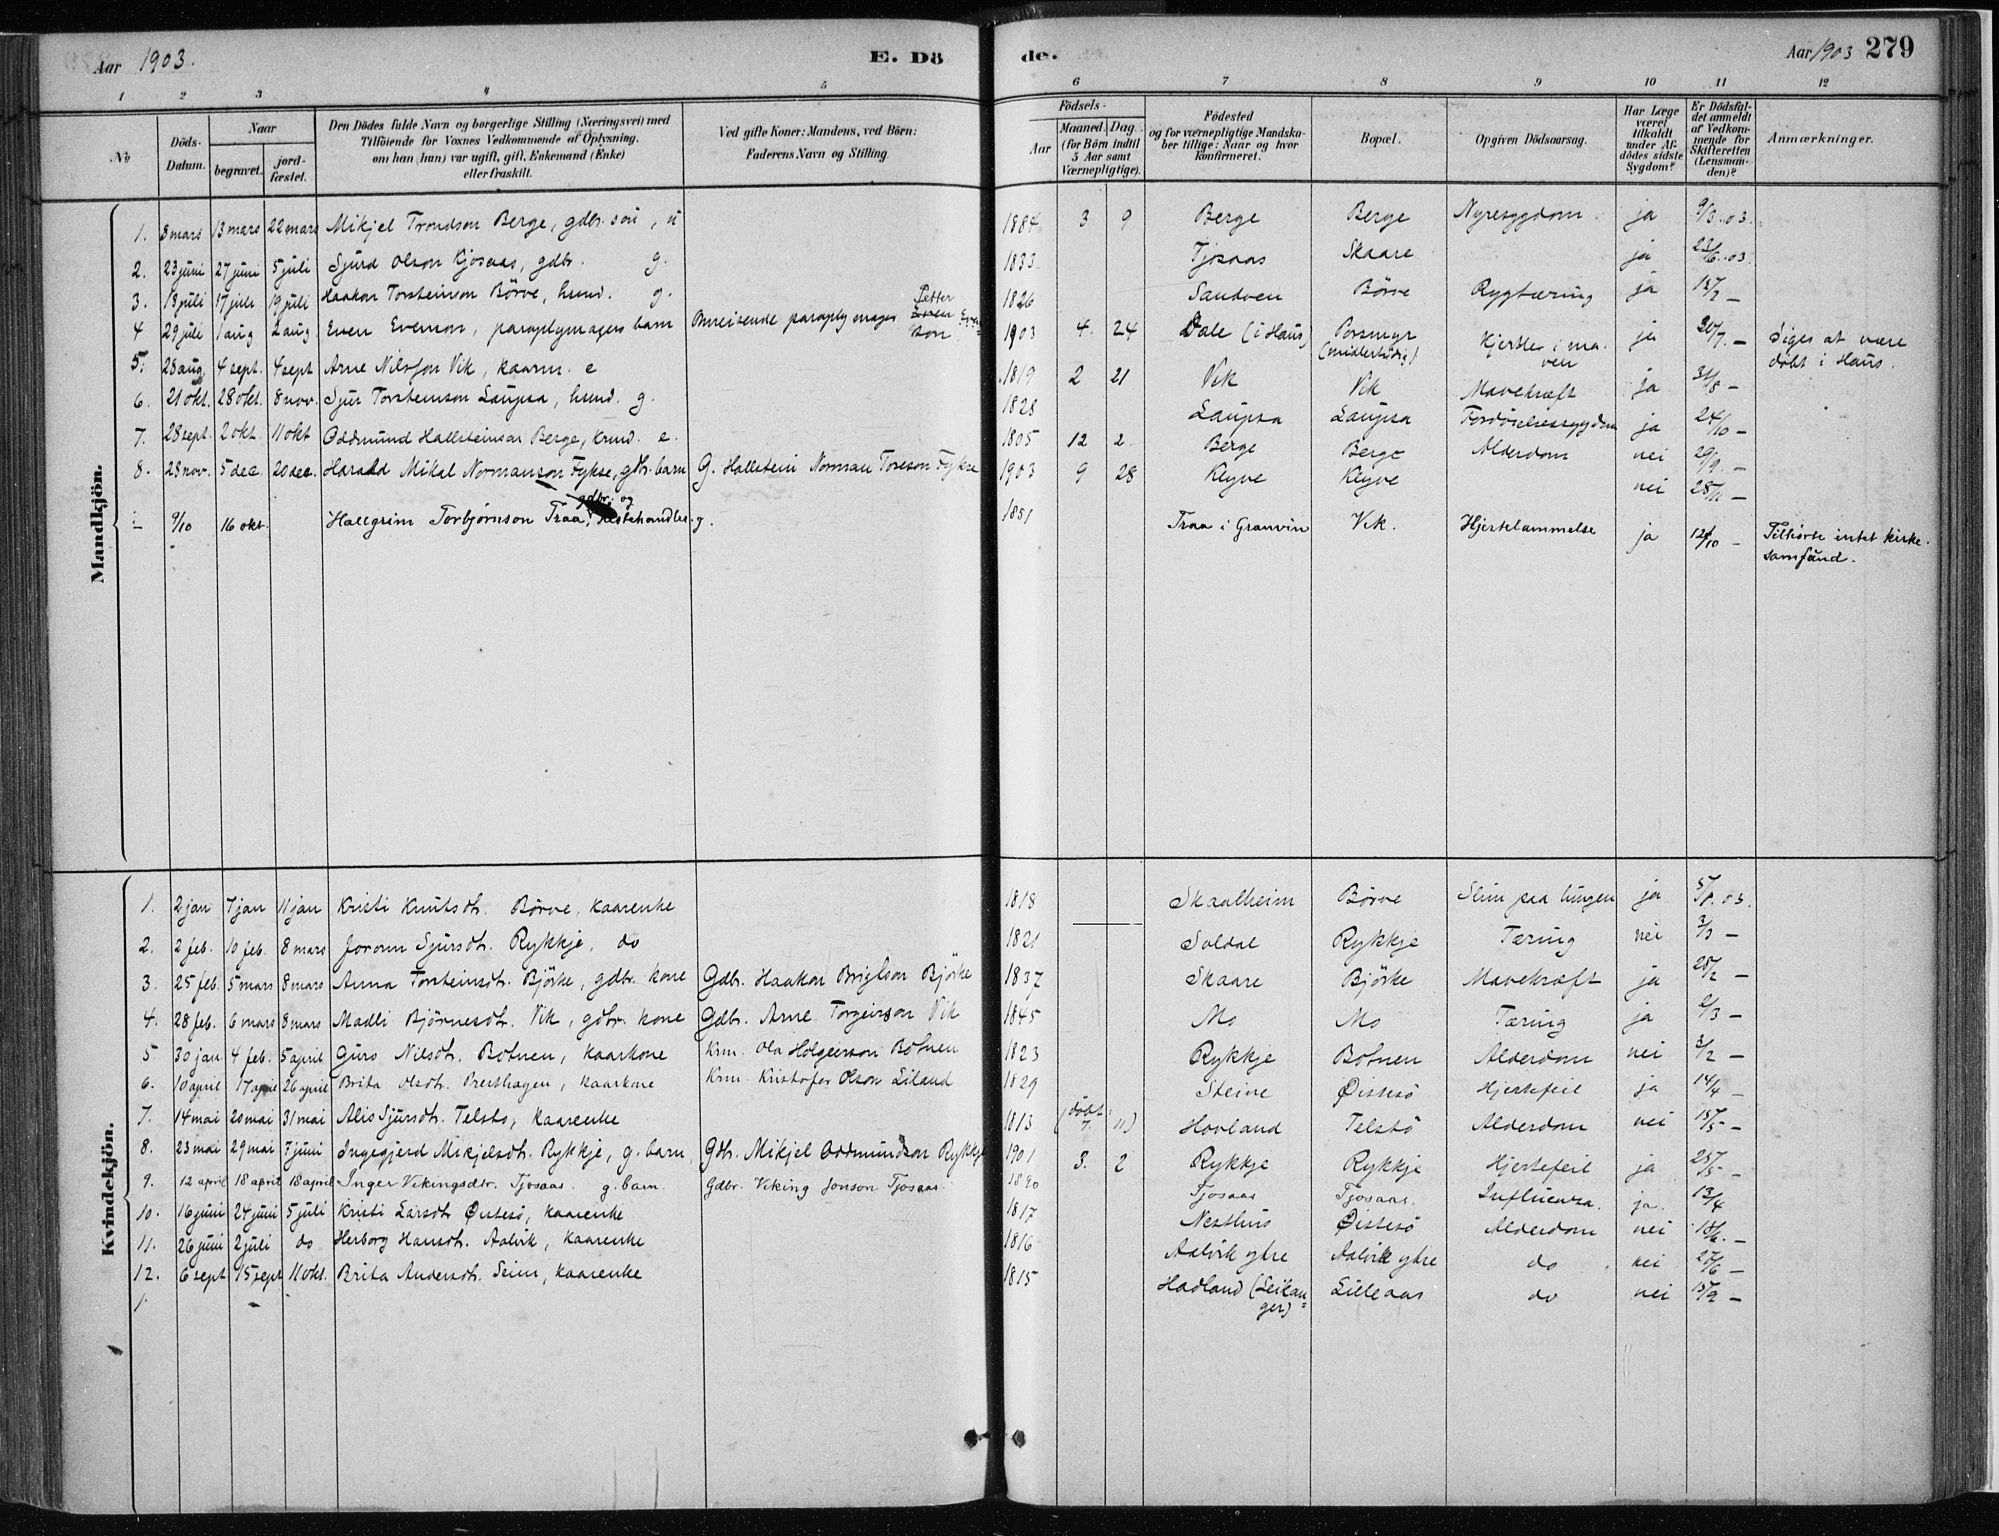 Aar 1903. E. Dö de. Aar 1903 279
1 2 3 4 5 6 7 8 9 10 11 12
No
Döds-Datum.
Naar
begravet.
jord-fæstet.
Den Dödes fulde Navn og borgerlige Stilling (Næringsvei) med
Tilföiende for Voxnes Vedkommende af Oplysning,
om han (hun) var ugift, gift, Enkemand (Enke)
eller fraskilt.
Ved gifte Koner: Mandens, ved Börn:
Faderens Navn og Stilling.
Födsels-
Aar
Maaned. Dag.
(for Börn indtil
5 Aar samt
Værnepligtige).
Födested
og for værnepligtige Mandska-
ber tillige: Naar og hvor
konfirmeret.
Bopæl.
Opgiven Dödsaarsag.
Har Læge
været
tilkaldt
under Af-
dödes sidste
Sygdom?
Er Dödsfal-
det anmeldt
af Vedkom-
mende for
Skifteretten
(Lensman-
den)?
Anmærkninger.
Mandkjön.
1. 8 mars 13 mars 22 mars Mikjel Trondson Berge, gdbr. son, u 1884 3 9 Berge Berge Nyresygdom ja 9/3 .03.
2. 23 juni 27 juni 5 juli Sjurd Olson Tjosaas, gdbr. g. 1833 Tjosaas Skaare ja 23/6 .03.
3. 13 juli 17 juli 19 juli Haakon Torsteinson Börve, husd. g. 1826 Sandven Börve Rygtæring ja 15/7 –
4 29 juli 1 aug 2 aug Even Evenson, paraplymagers barn Omreisende paraplymager Petter Even son 1903 4. 24 Dale (i Haus) Porsmyr (midlertidig) Kjertler i ma-ven ja 30/7. – Siges at være døbt i Haus.
5. 28 aug 4 sept. 4 sept Arne Nilsson Vik, kaarm. e 1819 2 21 Vik Vik Mavekræft ja 31/8 –
6. 21 okt. 28 okt. 8 nov. Sjur Torsteinson Laupsa, husd. g. 1828 Laupsa Laupsa Fordöielsessygdom ja 24/10 –
7. 28 sept. 2 okt. 11 okt Oddmund Hallsteinson Berge, krmd. e. 1805 12 2. Berge Berge Alderdom nei 29/9. –
8. 28 nov. 5 dec 20 dec. Harald Mikal Normanson Fykse, gdbr. barn G. Hallstein Norman Toreson Fykse 1903 9 28 Klyve Klyve nei 28/11 –
9/10 16 okt. Hallgrim Torbjørnson Traa, gdbr. og hestehandler g. 1851 Traa i Granvin Vik. Hjertelammelse ja 12/10 – Tilhørte intet kirke-samfund.
Kvindekjön.
1. 2 jan 7 jan 11 jan Kristi Knutsdt. Börve, kaarenke 1818 Skaalheim Börve Slim paa lungen ja 5/1. 03.
2. 2 feb. 10 feb. 8 mars Joronn Sjursdt. Rykkje, do 1821 Soldal Rykkje Tæring nei 3/3 –
3. 25 feb. 5 mars 8 mars Anna Torsteinsdt. Björke, gdbr. kone Gdbr. Haakon Brigtson Björke 1837 Skaare Björke Mavekræft ja 28/2 –
4. 28 feb. 6 mars 8 mars Madli Björnesdt. Vik, gdbr. kone Gdbr. Arne Torgeirson Vik 1845 Mo Mo Tæring ja 2/3 –
5 30 jan 4 feb. 5 april Guro Nilsdt. Botnen, kaarkone Krm. Ola Holgeirson Botnen 1823 Rykkje Botnen Alderdom nei 3/2 –
6. 10 april 17 april 26 april Brita Olsdt. Presthagen, kaarkone Krm. Kristofer Olson Liland 1829 Steine Øistesö Hjertefeil ja 14/4 –
7. 14 mai 20 mai 31 mai Alis Sjursdt. Telstø, kaarenke 1813 (døbt 7. 11) Hovland Telstö Alderdom nei 15/5 –
8. 23 mai 29 mai 7 juni Ingegjerd Mikjelsdt. Rykkje, g. barn, Gdb. Mikjel Oddmundson Rykkje 1901 3. 2 Rykkje Rykkje Hjertefeil ja 25/5 –
9. 12 april 18 april 18 april Inger Vikingsdtr. Tjosaas g. barn. Gdbr. Viking Jonson Tjosaas 1890 Tjosaas Tjosaas. Influenza. ja. 13/4
10. 16 juni 24 juni 5 juli Kristi Larsdt Østesö, kaarenke 1817 Nesthus Øistesö Alderdom nei 18/6. –
11. 26 juni 2 juli do Herborg Hansdt. Aalvik, kaarenke 1816 Aalvik ytre Aalvik ytre do nei 27/6 –
12. 6 sept 15 sept 11 okt. Brita Andersdt. Seim, kaarenke 1815 Hadland (Leikan-ger) Lilleaas do nei 15/9 –